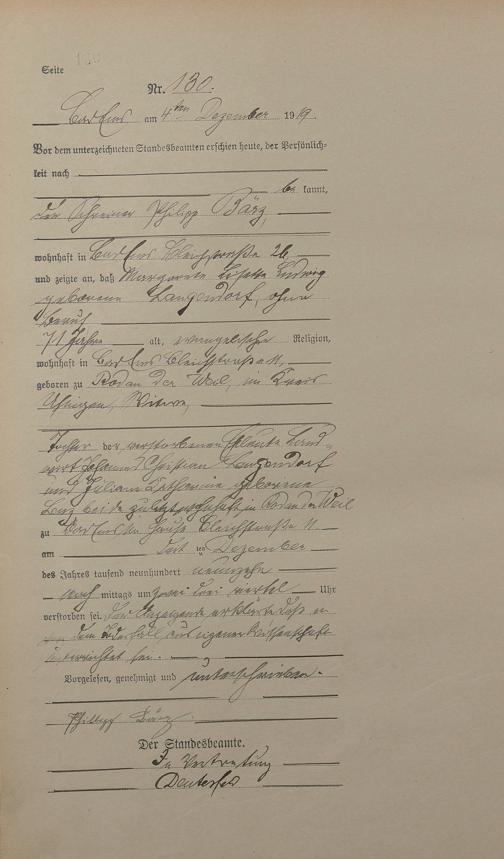 Seite 130
Nr. 130.
Bad Ems am 4ten Dezember 1919.
Vor dem unterzeichneten Standesbeamten erschien heute, der Persönlich-
keit nach
be kannt,
der Schreiner Philipp Bärz,
wohnhaft in Bad Ems Bleichstraße 26
und zeigte an, daß Margarete Ludwig
geborene Langendorf, ohne
Beruf
71 Jahre alt, evangelischer Religion,
wohnhaft in Bad Ems Bleichstraße 11,
geboren zu Rod an der Weil, im Kreis
Usingen, Witwe,
Tochter der verstorbenen Eheleute Land-
wirt Johann Christian Langendorf
und Juliane Katharine geborene
Lenz beide zuletzt wohnhaft in Rod an der Weil
zu Bad Ems im Hause Bleichstraße 11
am ten Dezember
des Jahres tausend neunhundert neunzehn
nach mittags um zwei drei viertel Uhr
verstorben sei. Der Anzeigende erklärte daß er
von dem Sterbefall aus eigener Wissenschaft
unterrichtet sei.
Vorgelesen, genehmigt und unterschrieben.
Philipp Bärz.
Der Standesbeamte.
In Vertretung